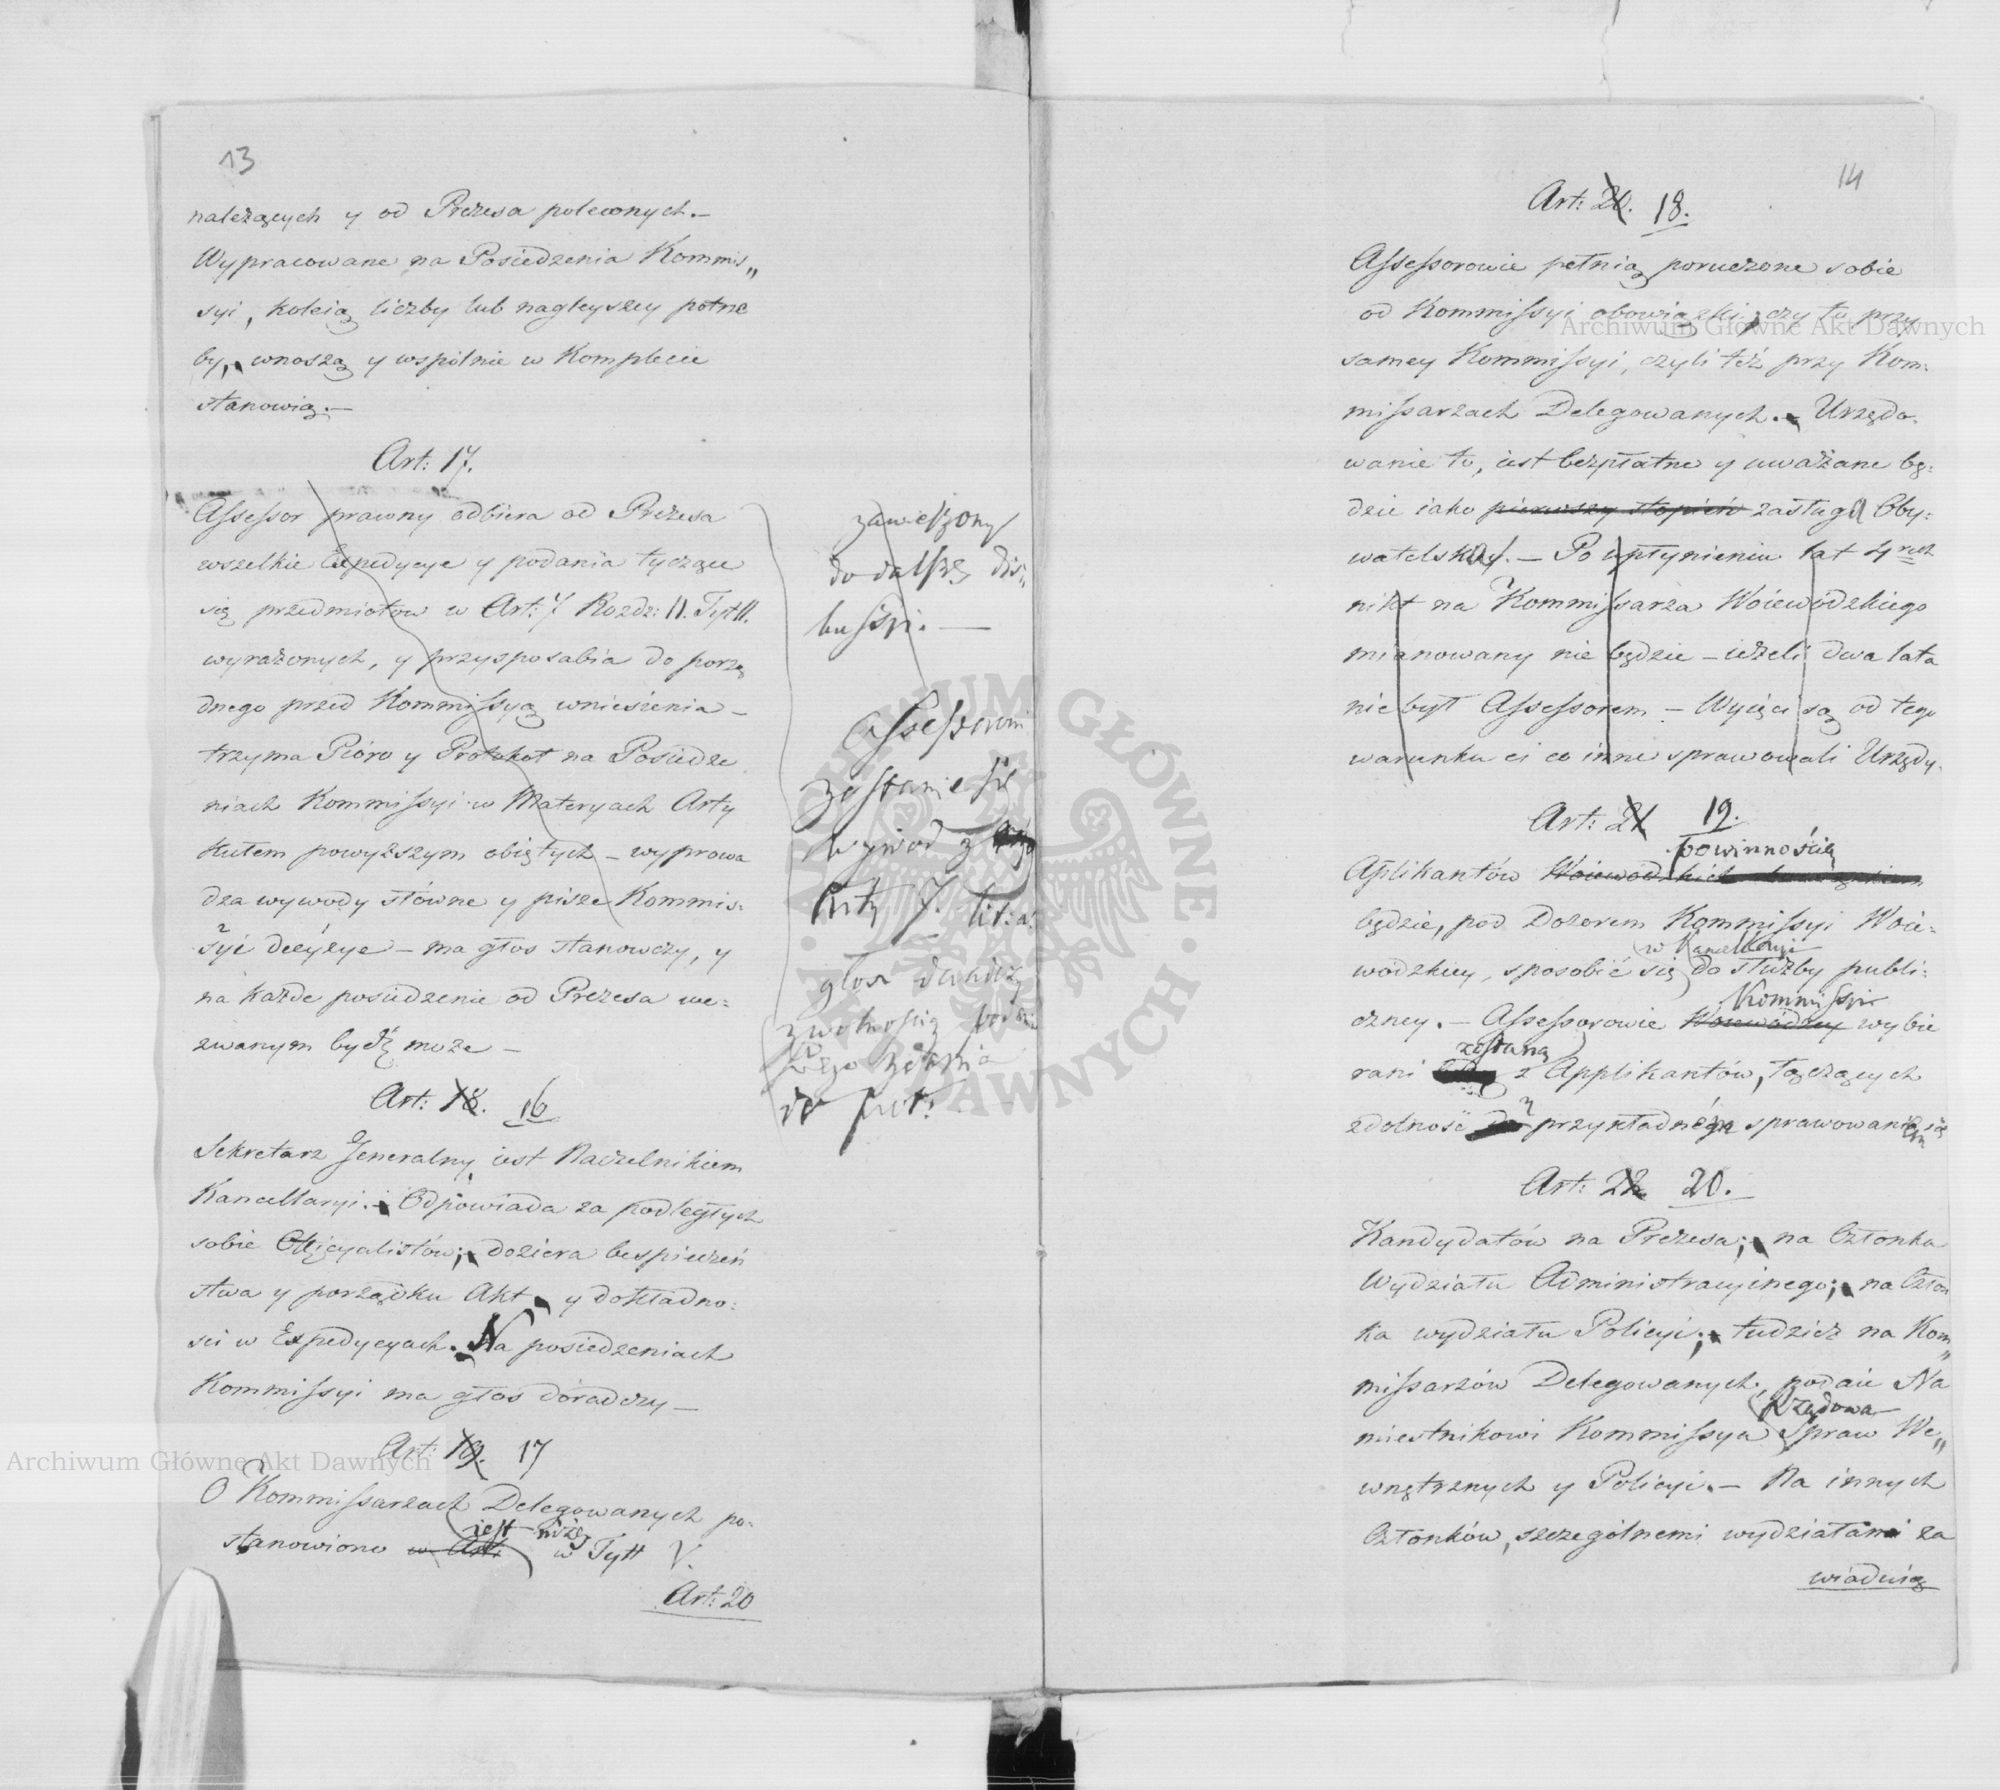 13
należących y od Prezesa poleconych.—
Wypracowane na Posiedzenia Kommis„
syi, koleią liczby lub nagleyszey potrze
by, wnoszą y wspólnie w Komplecie
stanowią.—
Art: 17.
Assessor prawny odbiera od Prezesa
wszelkie Expedycye y podania tyczące
się przedmiotów w Art: 7 Rozdz: II. Tyt II.
wyrażonych, y przysposabia do porzą
dnego przed Kommissyą wniesienia —
trzyma Pióro y Protokół na Posiedze
niach Kommissyi w Materyach Arty
kułem powyższym obiętych — wyprowa
dza wywody słówne y pisze Kommis:
syi decyzye — ma głos stanowczy, y
na każde posiedzenie od Prezesa we:
zwanym bydź może —
Art: 18. 16
Sekretarz Generalny iest Naczelnikiem
Kancellaryi. — Odpowiada za podległych
sobie Officyalistów; doziera bespieczeń
stwa y porządku Akt y dokładno:
ści w Expedycyach. Na posiedzeniach
Kommissyi ma głos doradczy —
Art: 19. 17
O Kommissarzach Delegowanych po:
iest niżey
stanowiono w Art: w Tytt V.
Art: 20
zawieszony
do dalszey dis„
kussyi. —
Assessorowi
zostanie się
wywod z
Arty 7. lit: a.
głos doradczy
z wolnością
swego zdania
do prot:
14
Art: 20. 18.
Assessorowie pełnią poruczone sobie
od Kommissyi obowiązki, czy to przy
samey Kommissyi, czyli téż przy Kom:
missarzach Delegowanych. — Urzędo:
wanie to, iest bezpłatne y uważane bę:
dzie iako pierwszy stopień zasługi Oby:
watelskiey. — Po upłynieniu lat 4rech
nikt na Kommissarza Woiewódzkiego
mianowany nie będzie — ieżeli dwa lata
nie był Assessorem — Wyięci są od tego
warunku ci co inne sprawowali Urzędy.
Art: 21 19.
powinnością
Aplikantów Woiewodzkich
będzie, pod Dozorem Kommissyi Woie:
w Kancellaryi
wódzkiey, sposobić się do służby publi:
Kommissyi
czney. — Assessorowie Woiewódzcy wybie
zostaną
rani z Applikantów, łączących
zdolność przykładném sprawowaniem się
Art: 22 20.
Kandydatów na Prezesa; na Członka
Wydziału Administracyinego; na Człon
ka wydziału Policyi; tudzież na Kom„
missarzów Delegowanych, podaie Na
Rządowa
miestnikowi Kommissya Spraw We„
wnętrznych y Policyi. — Na innych
Członków, szczególnemi wydziałami za
wiaduią
Archiwum Główne Akt Dawnych
Archiwum Główne Akt Dawnych
ARCHIWUM GŁÓWNE AKT DAWNYCH